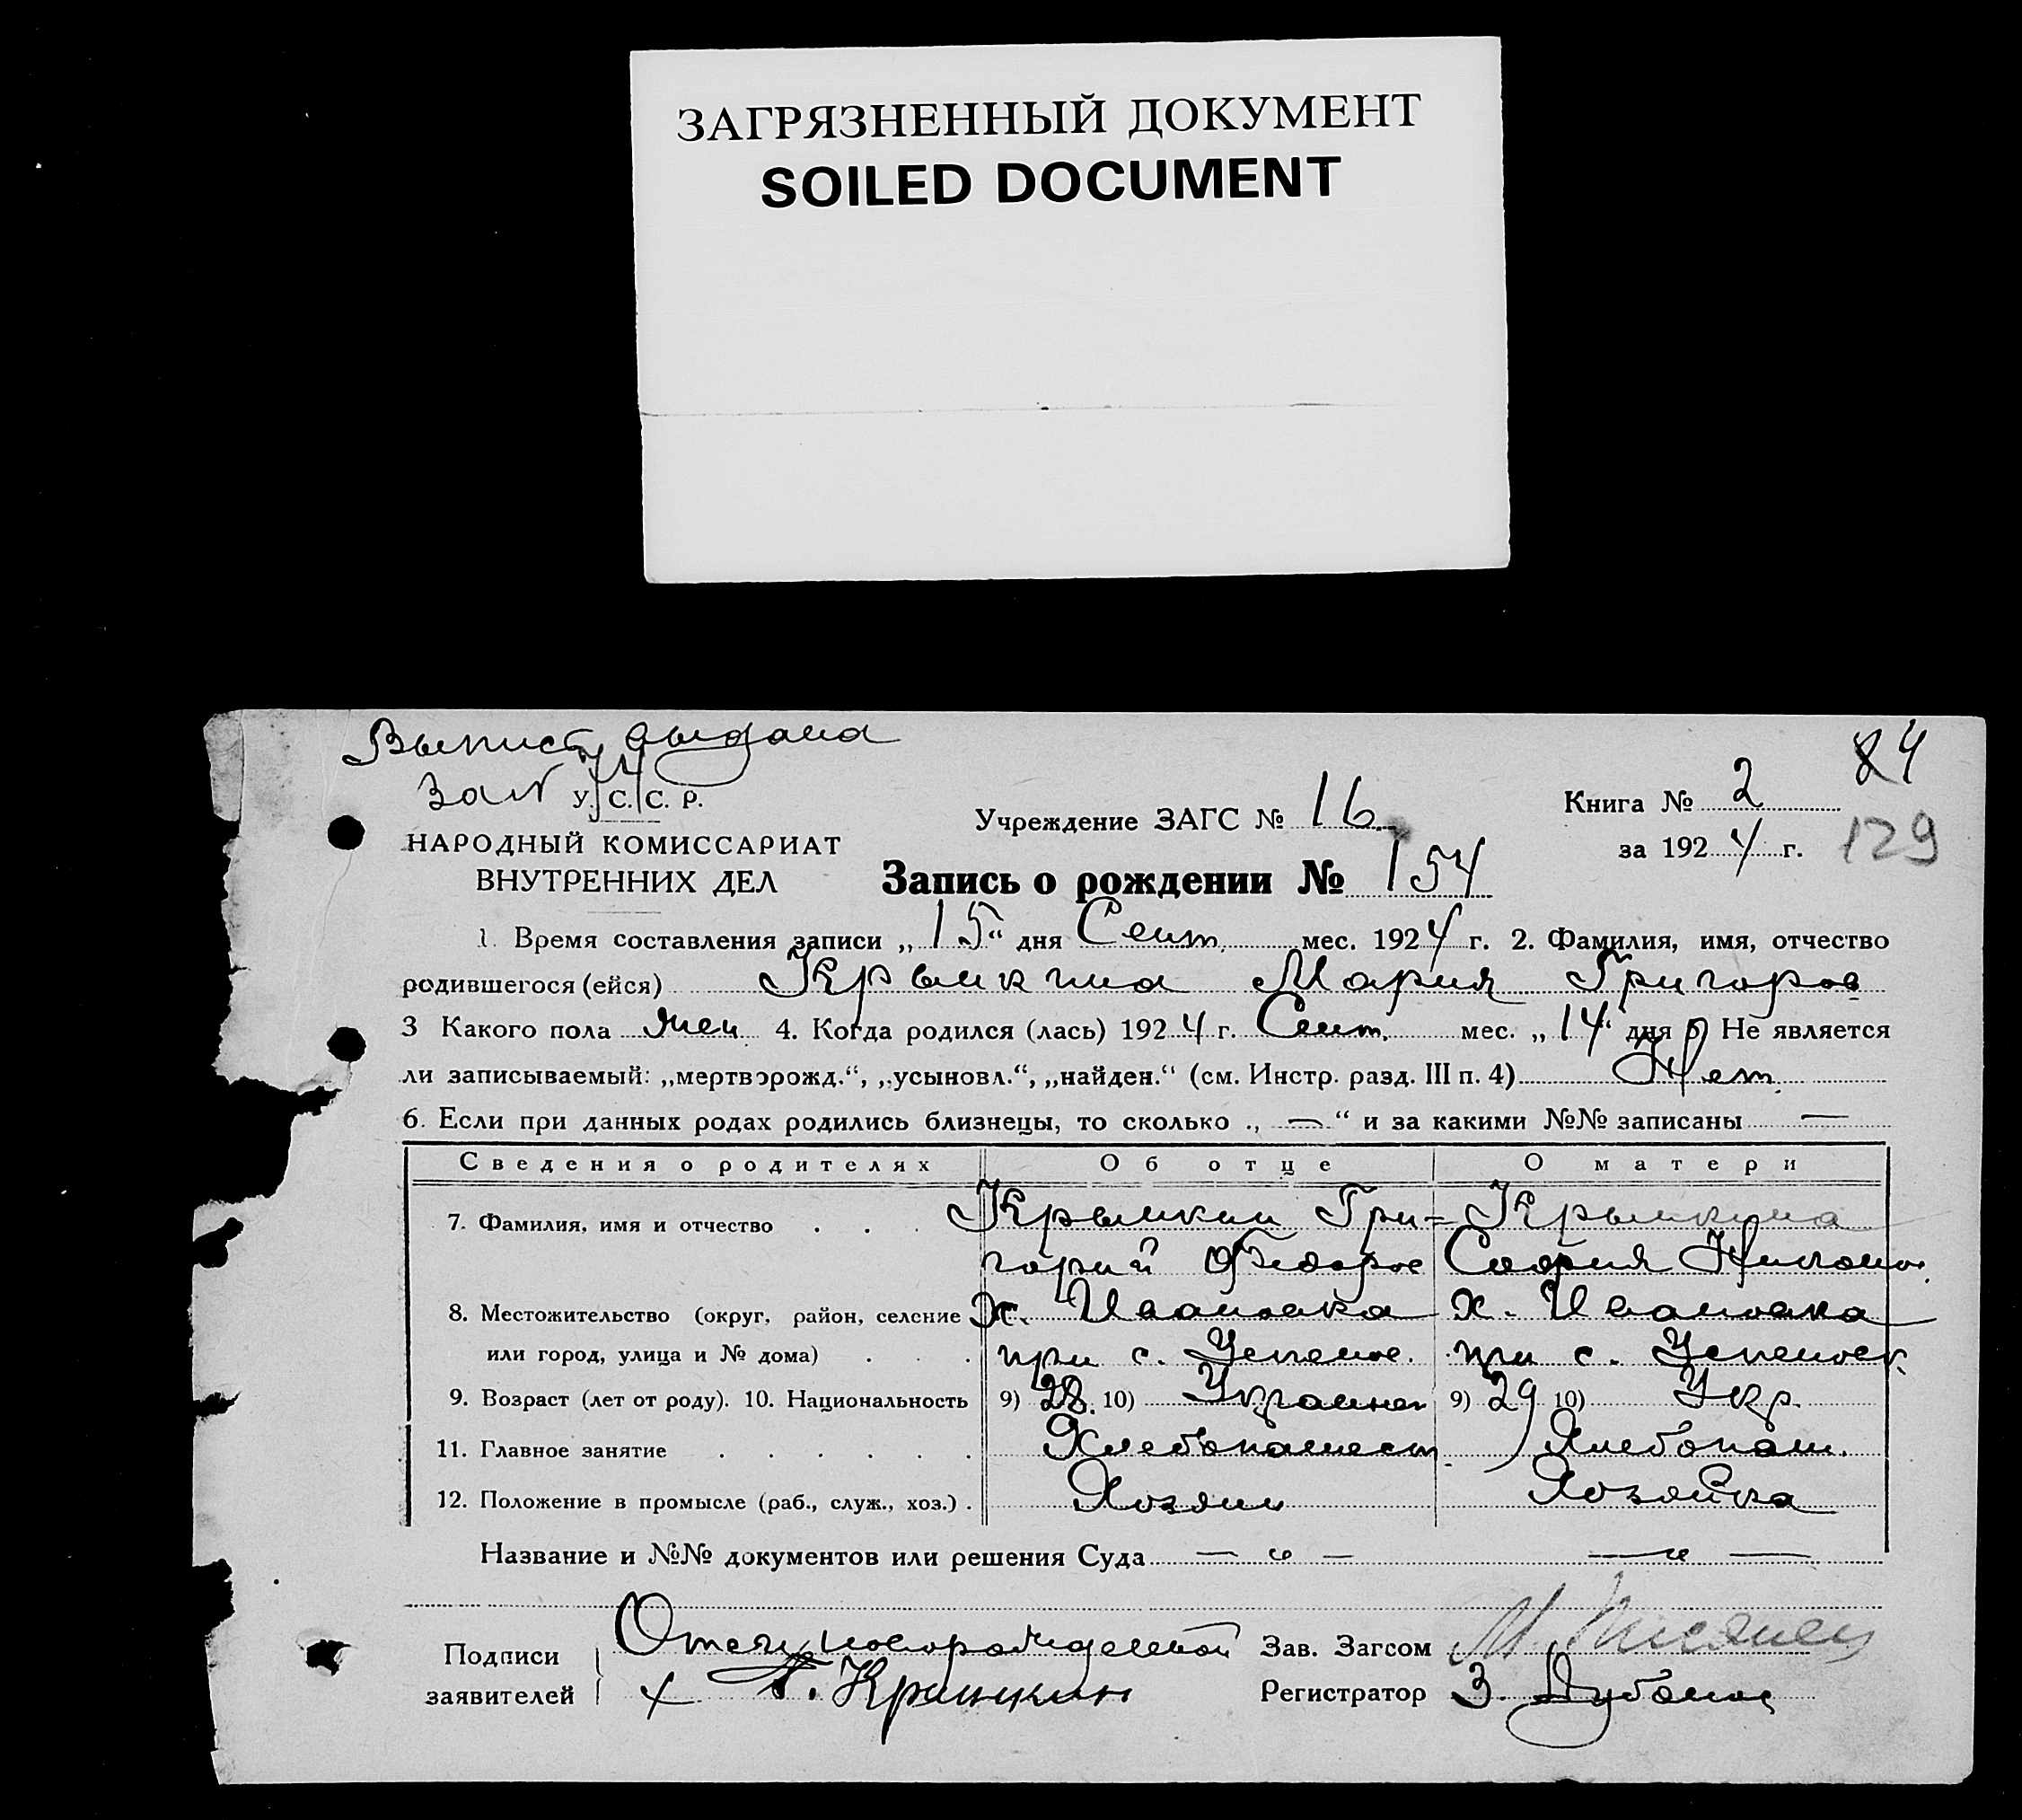 ЗАГРЯЗНЕННЫЙ ДОКУМЕНТ
SOILED DOCUMENT
Выпись выдана
84
У. С. С. Р.
Учреждение ЗАГС № 16
Книга № 2
НАРОДНЫЙ КОМИССАРИАТ
за 1924 г. 129
ВНУТРЕННИХ ДЕЛ
Запись о рождении № 154
1. Время составления записи „15“ дня Сент. мес. 1924 г. 2. Фамилия, имя, отчество
родившегося (ейся) Крымкина Мария Григоров
3 Какого пола жен 4. Когда родился (лась) 1924 г. Сент. мес. „14“ дня 5) Не является
ли записываемый: „мертворожд.“, „усыновл.“, „найден.“ (см. Инстр. разд. III п. 4) Нет.
6. Если при данных родах родились близнецы, то сколько „—“ и за какими №№ записаны —
Сведения о родителях Об отце О матери
7. Фамилия, имя и отчество . . . Крымкин Гри- Крымкина
горий Федоров София
8. Местожительство (округ, район, селение х. Ивановка х. Ивановка
или город, улица и № дома) . . . при с. Успенов. при с. Успеновк.
9. Возраст (лет от роду). 10. Национальность 9) 28. 10) Украинец 9) 29 10) Укр.
11. Главное занятие . . . . . . Хлебопашест. Хлебопаш.
12. Положение в промысле (раб., служ., хоз.) . Хозяин Хозяйка
Название и №№ документов или решения Суда — „ — — „ —
Подписи Отец новорожденной Зав. Загсом М.
заявителей х Г. Крымкин Регистратор З.